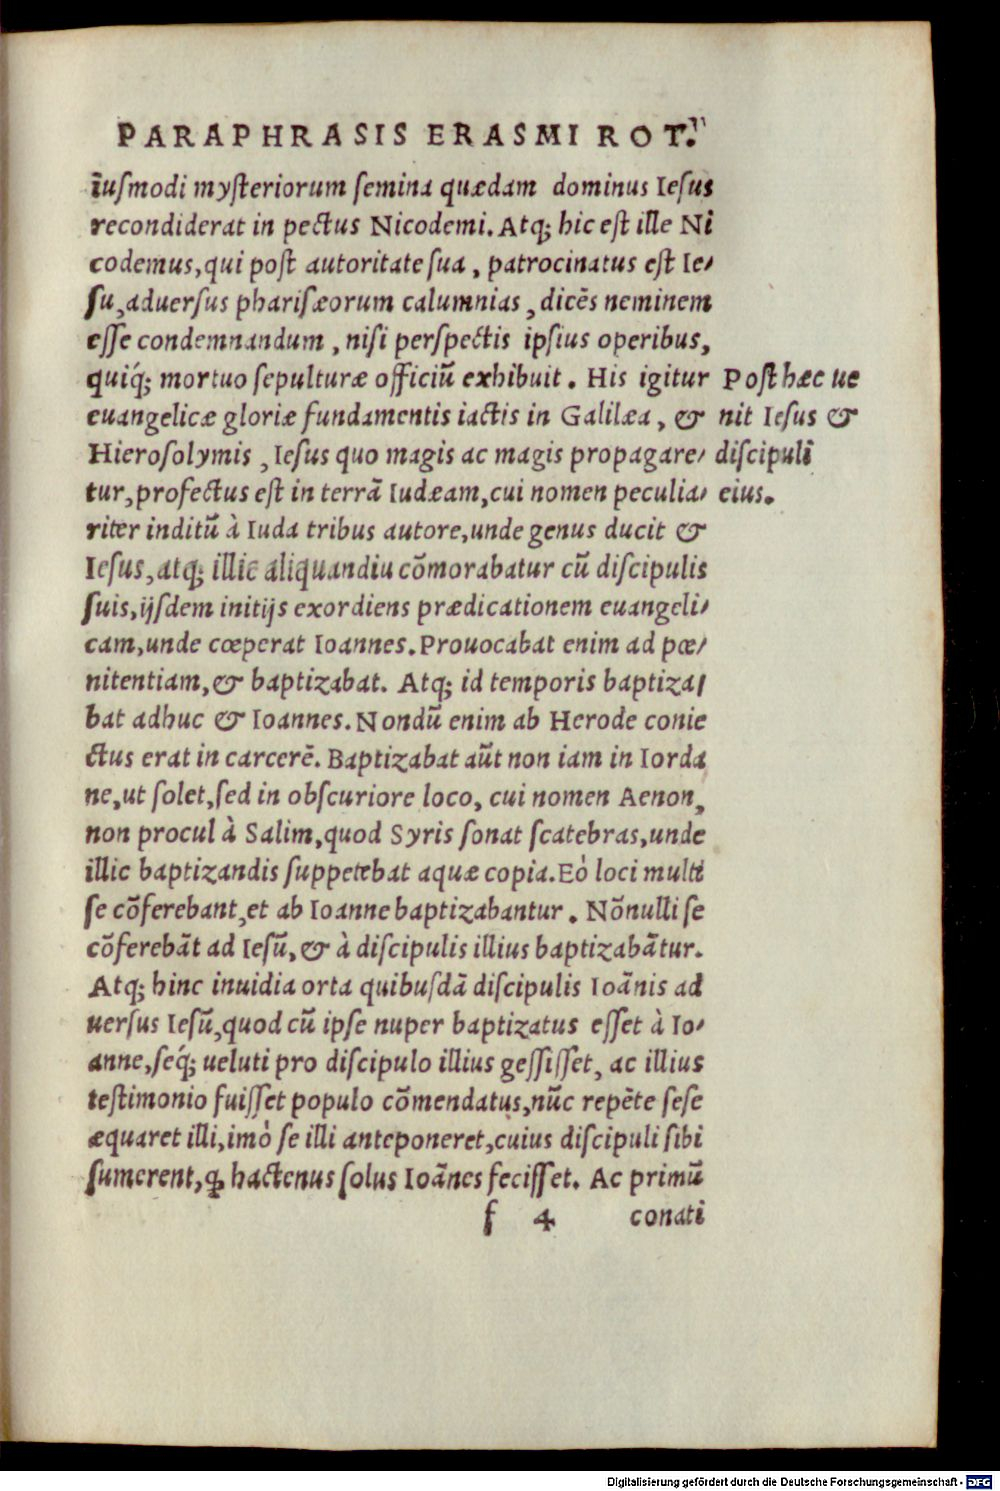 PARAPHRASIS ERASMI ROT.
iusmodi mysteriorum semina quædam dominus Iesus
recondiderat in pectus Nicodemi. Atq; hic est ille Ni
codemus, qui post autoritate sua, patrocinatus est Ie-
su, aduersus pharisæorum calumnias, dicẽs neminem
esse condemnandum, nisi perspectis ipsius operibus,
quiq́; mortuo sepulturæ officiũ exhibuit. His igitur
euangelicæ gloriæ fundamentis iactis in Galilæa, &
Hierosolymis, Iesus quo magis ac magis propagare-
tur, profectus est in terrã Iudæam, cui nomen peculia-
riter inditũ à Iuda tribus autore, unde genus ducit &
Iesus, atq; illic aliquandiu cõmorabatur cũ discipulis
suis, ijsdem initijs exordiens prædicationem euangeli-
cam, unde cœperat Ioannes. Prouocabat enim ad pœ-
nitentiam, & baptizabat. Atq; id temporis baptiza-
bat adhuc & Ioannes. Nondũ enim ab Herode conie
ctus erat in carcerẽ. Baptizabat aũt non iam in Iorda
ne, ut solet, sed in obscuriore loco, cui nomen Aenon,
non procul à Salim, quod Syris sonat scatebras, unde
illic baptizandis suppetebat aquæ copia. Eò loci multi
se cõferebant, et ab Ioanne baptizabantur. Nõnulli se
cõferebãt ad Iesũ, & à discipulis illius baptizabãtur.
Atq; hinc inuidia orta quibusdã discipulis Ioãnis ad
uersus Iesũ, quod cũ ipse nuper baptizatus esset à Io-
anne, seq́; ueluti pro discipulo illius gessisset, ac illius
testimonio fuisset populo cõmendatus, nũc repẽte sese
æquaret illi, imò se illi anteponeret, cuius discipuli sibi
sumerent, ꝙ hactenus solus Ioãnes fecisset. Ac primũ
f 4 conati
Post hæc ue
nit Iesus &
discipuli
eius.
Digitalisierung gefördert durch die Deutsche Forschungsgemeinschaft - DFG